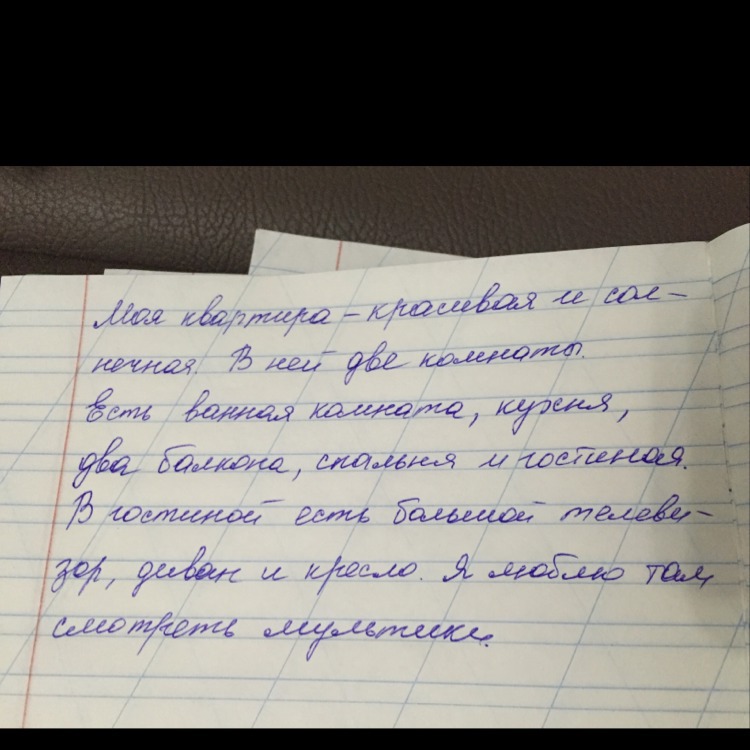 Моя квартира – красивая и сол-
нечная. В ней две комнаты.
Есть ванная комната, кухня,
два балкона, спальня и гостиная.
В гостиной есть большой телеви-
зор, диван и кресло. Я люблю там
смотреть мультики.